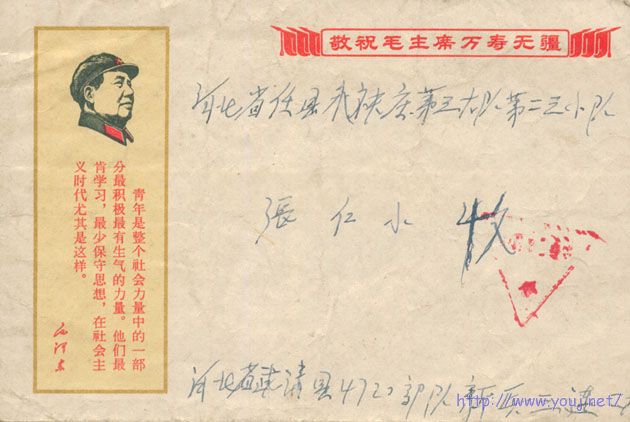 敬祝毛主席万寿无疆
河北省任县 第三大队第二三小队
張仁水 收
青年是整个社会力量中的一部
分最积极最有生气的力量。他们最
肯学习，最少保守思想，在社会主
义时代尤其是这样。
毛泽东
河北省 清县4720部队新兵二连
http://www.youj.net7